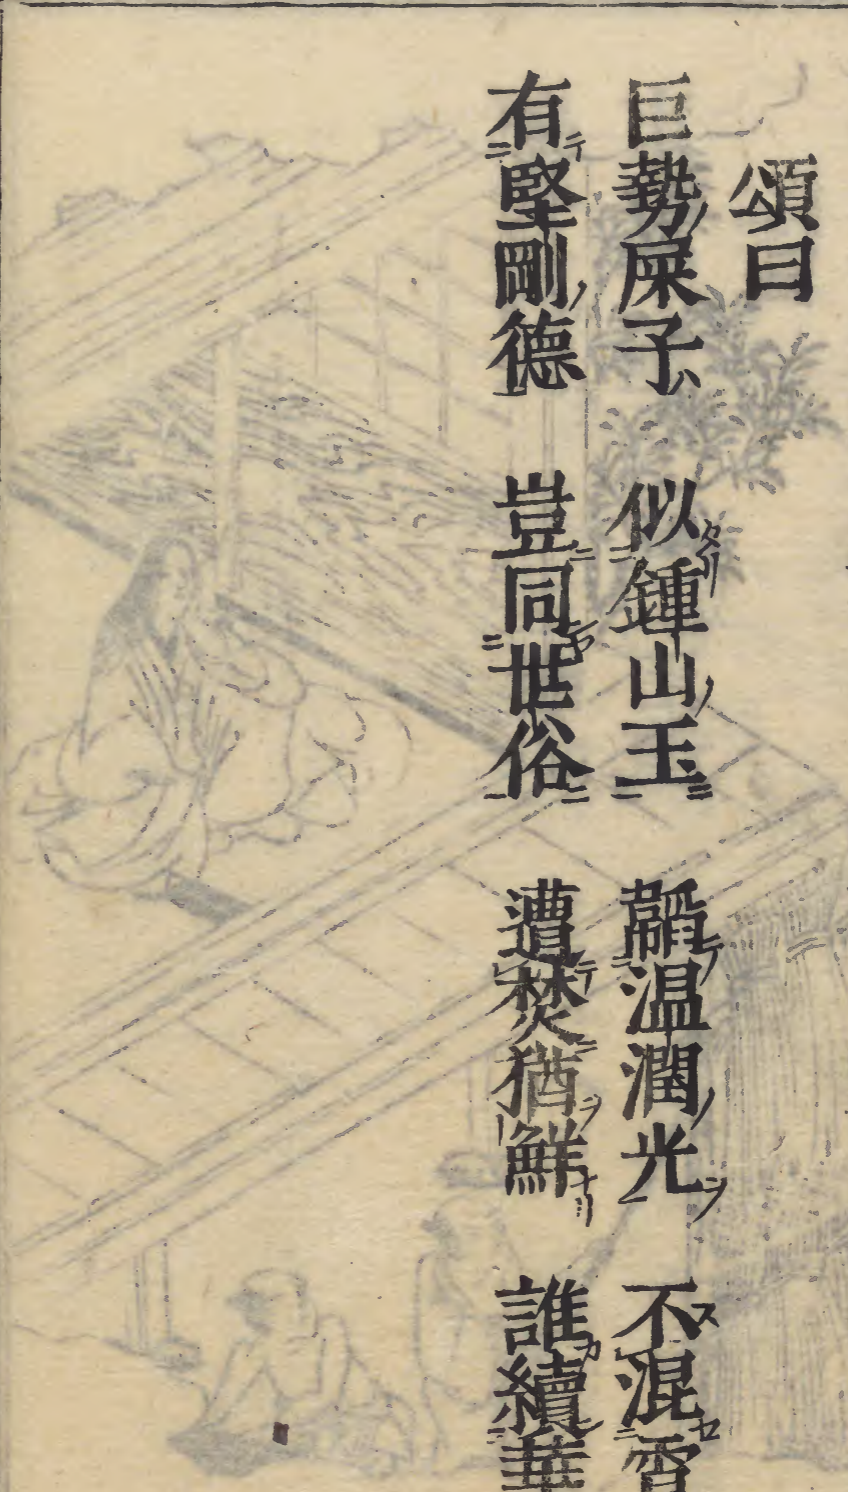 頌曰
巨勢屎子 似鍾山玉 韜温潤光 不混
有堅剛德 豈同世俗 遭焚猶鮮 誰續華